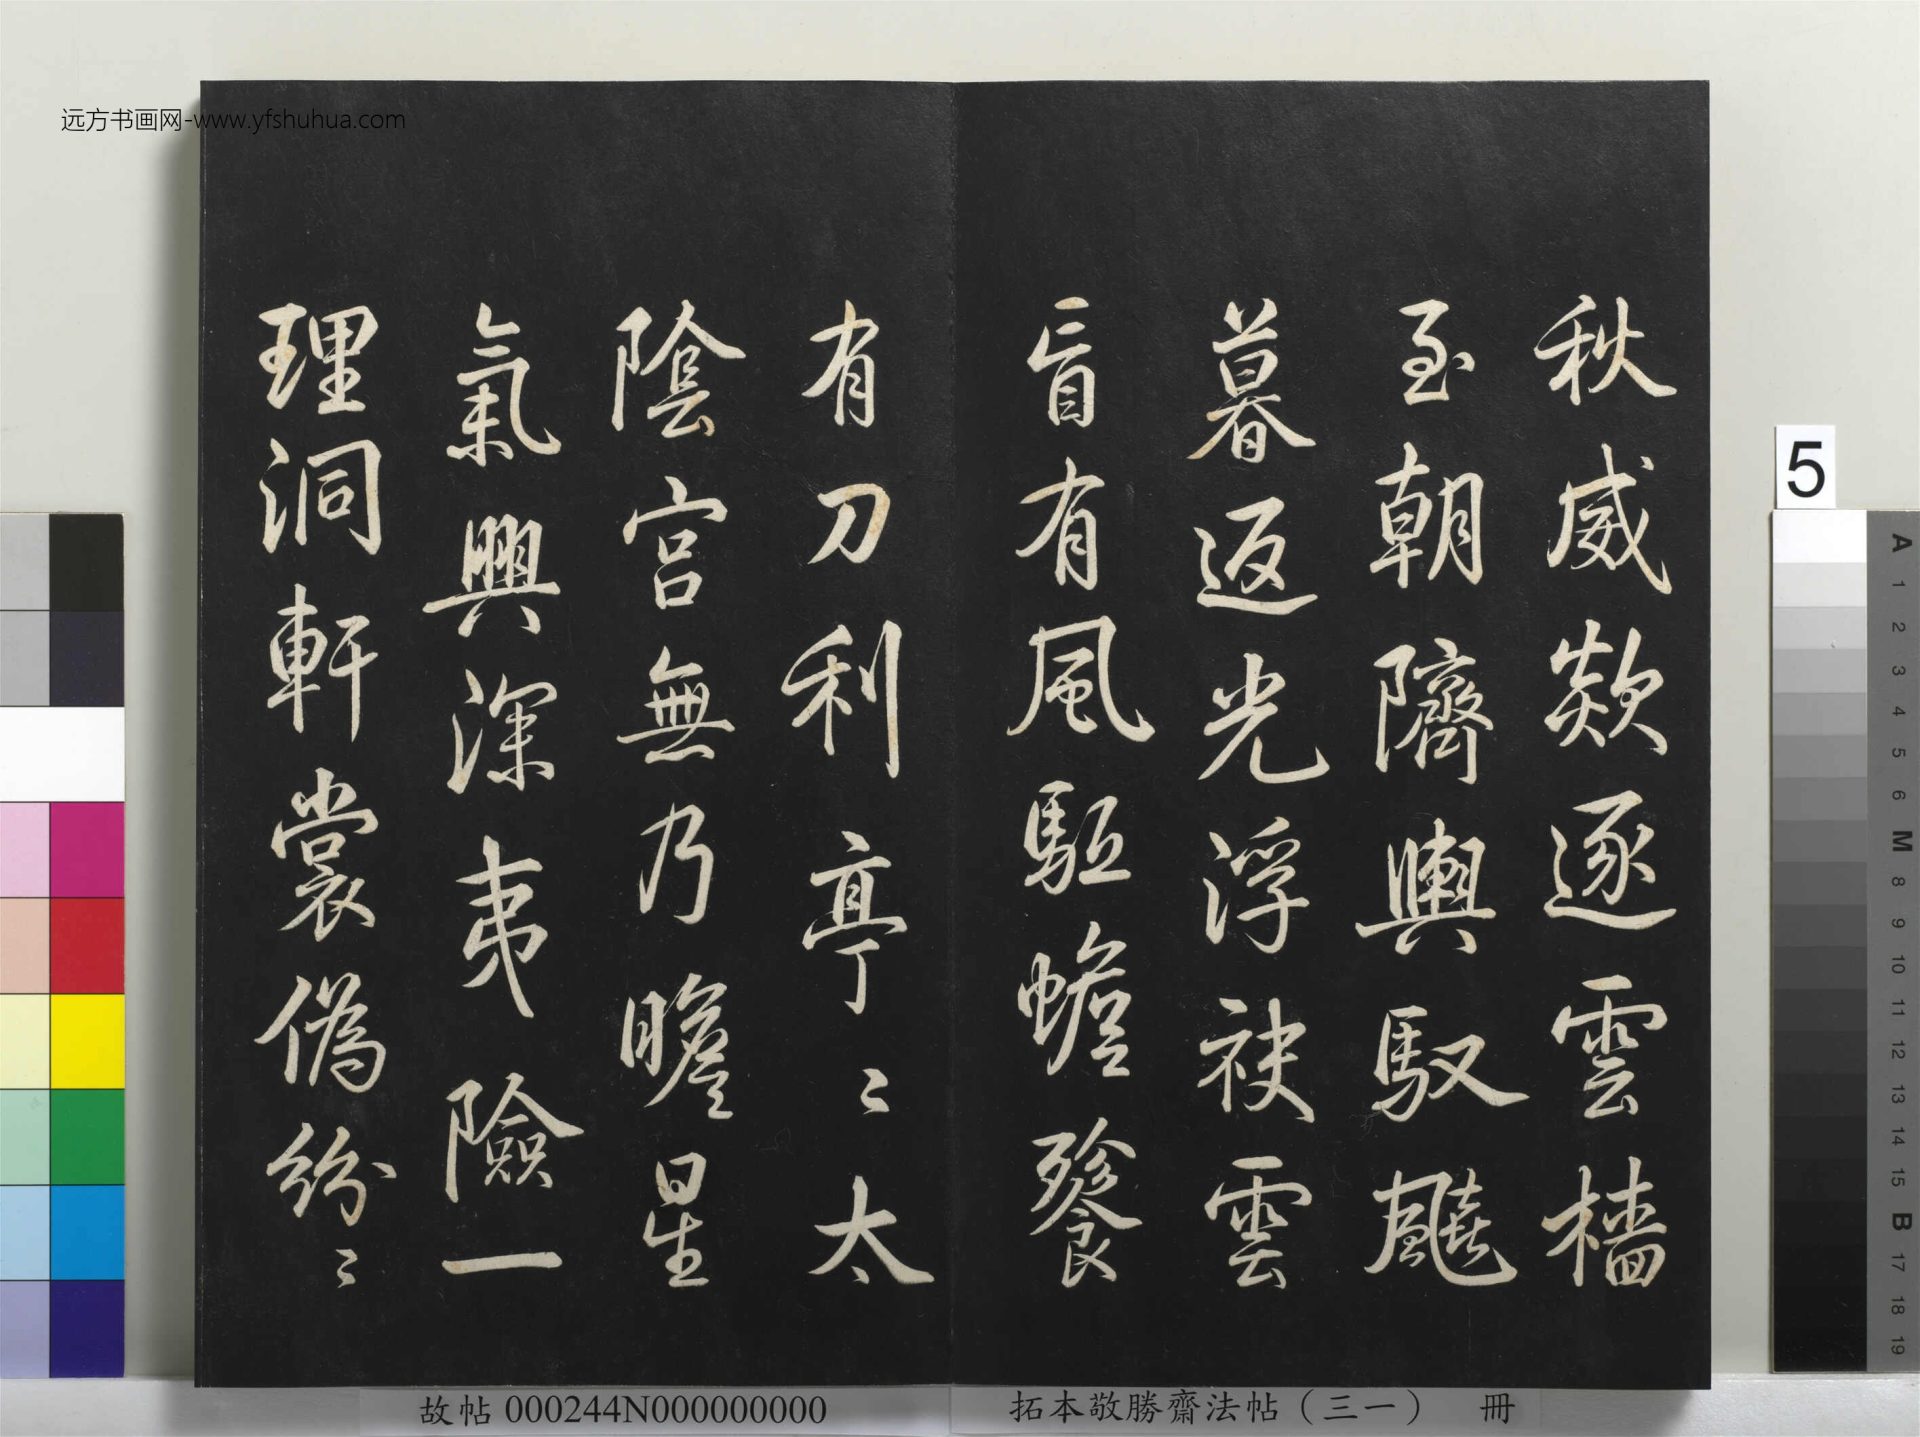 远方书画网-www.yfshuhua.com
秋威欻逐雲檣
至朝隮輿馭飈
暮返光浮袂雲
有風駈蟾餮
有刀利亭〻太
陰宮無乃瞻星
氣興深夷險一
理洞軒裳偽紛〻
5
A
1
2
3
4
5
6
M
8
9
10
11
12
13
14
15
B
17
18
19
故帖 000244N000000000
拓本敬勝齋法帖（三一） 冊